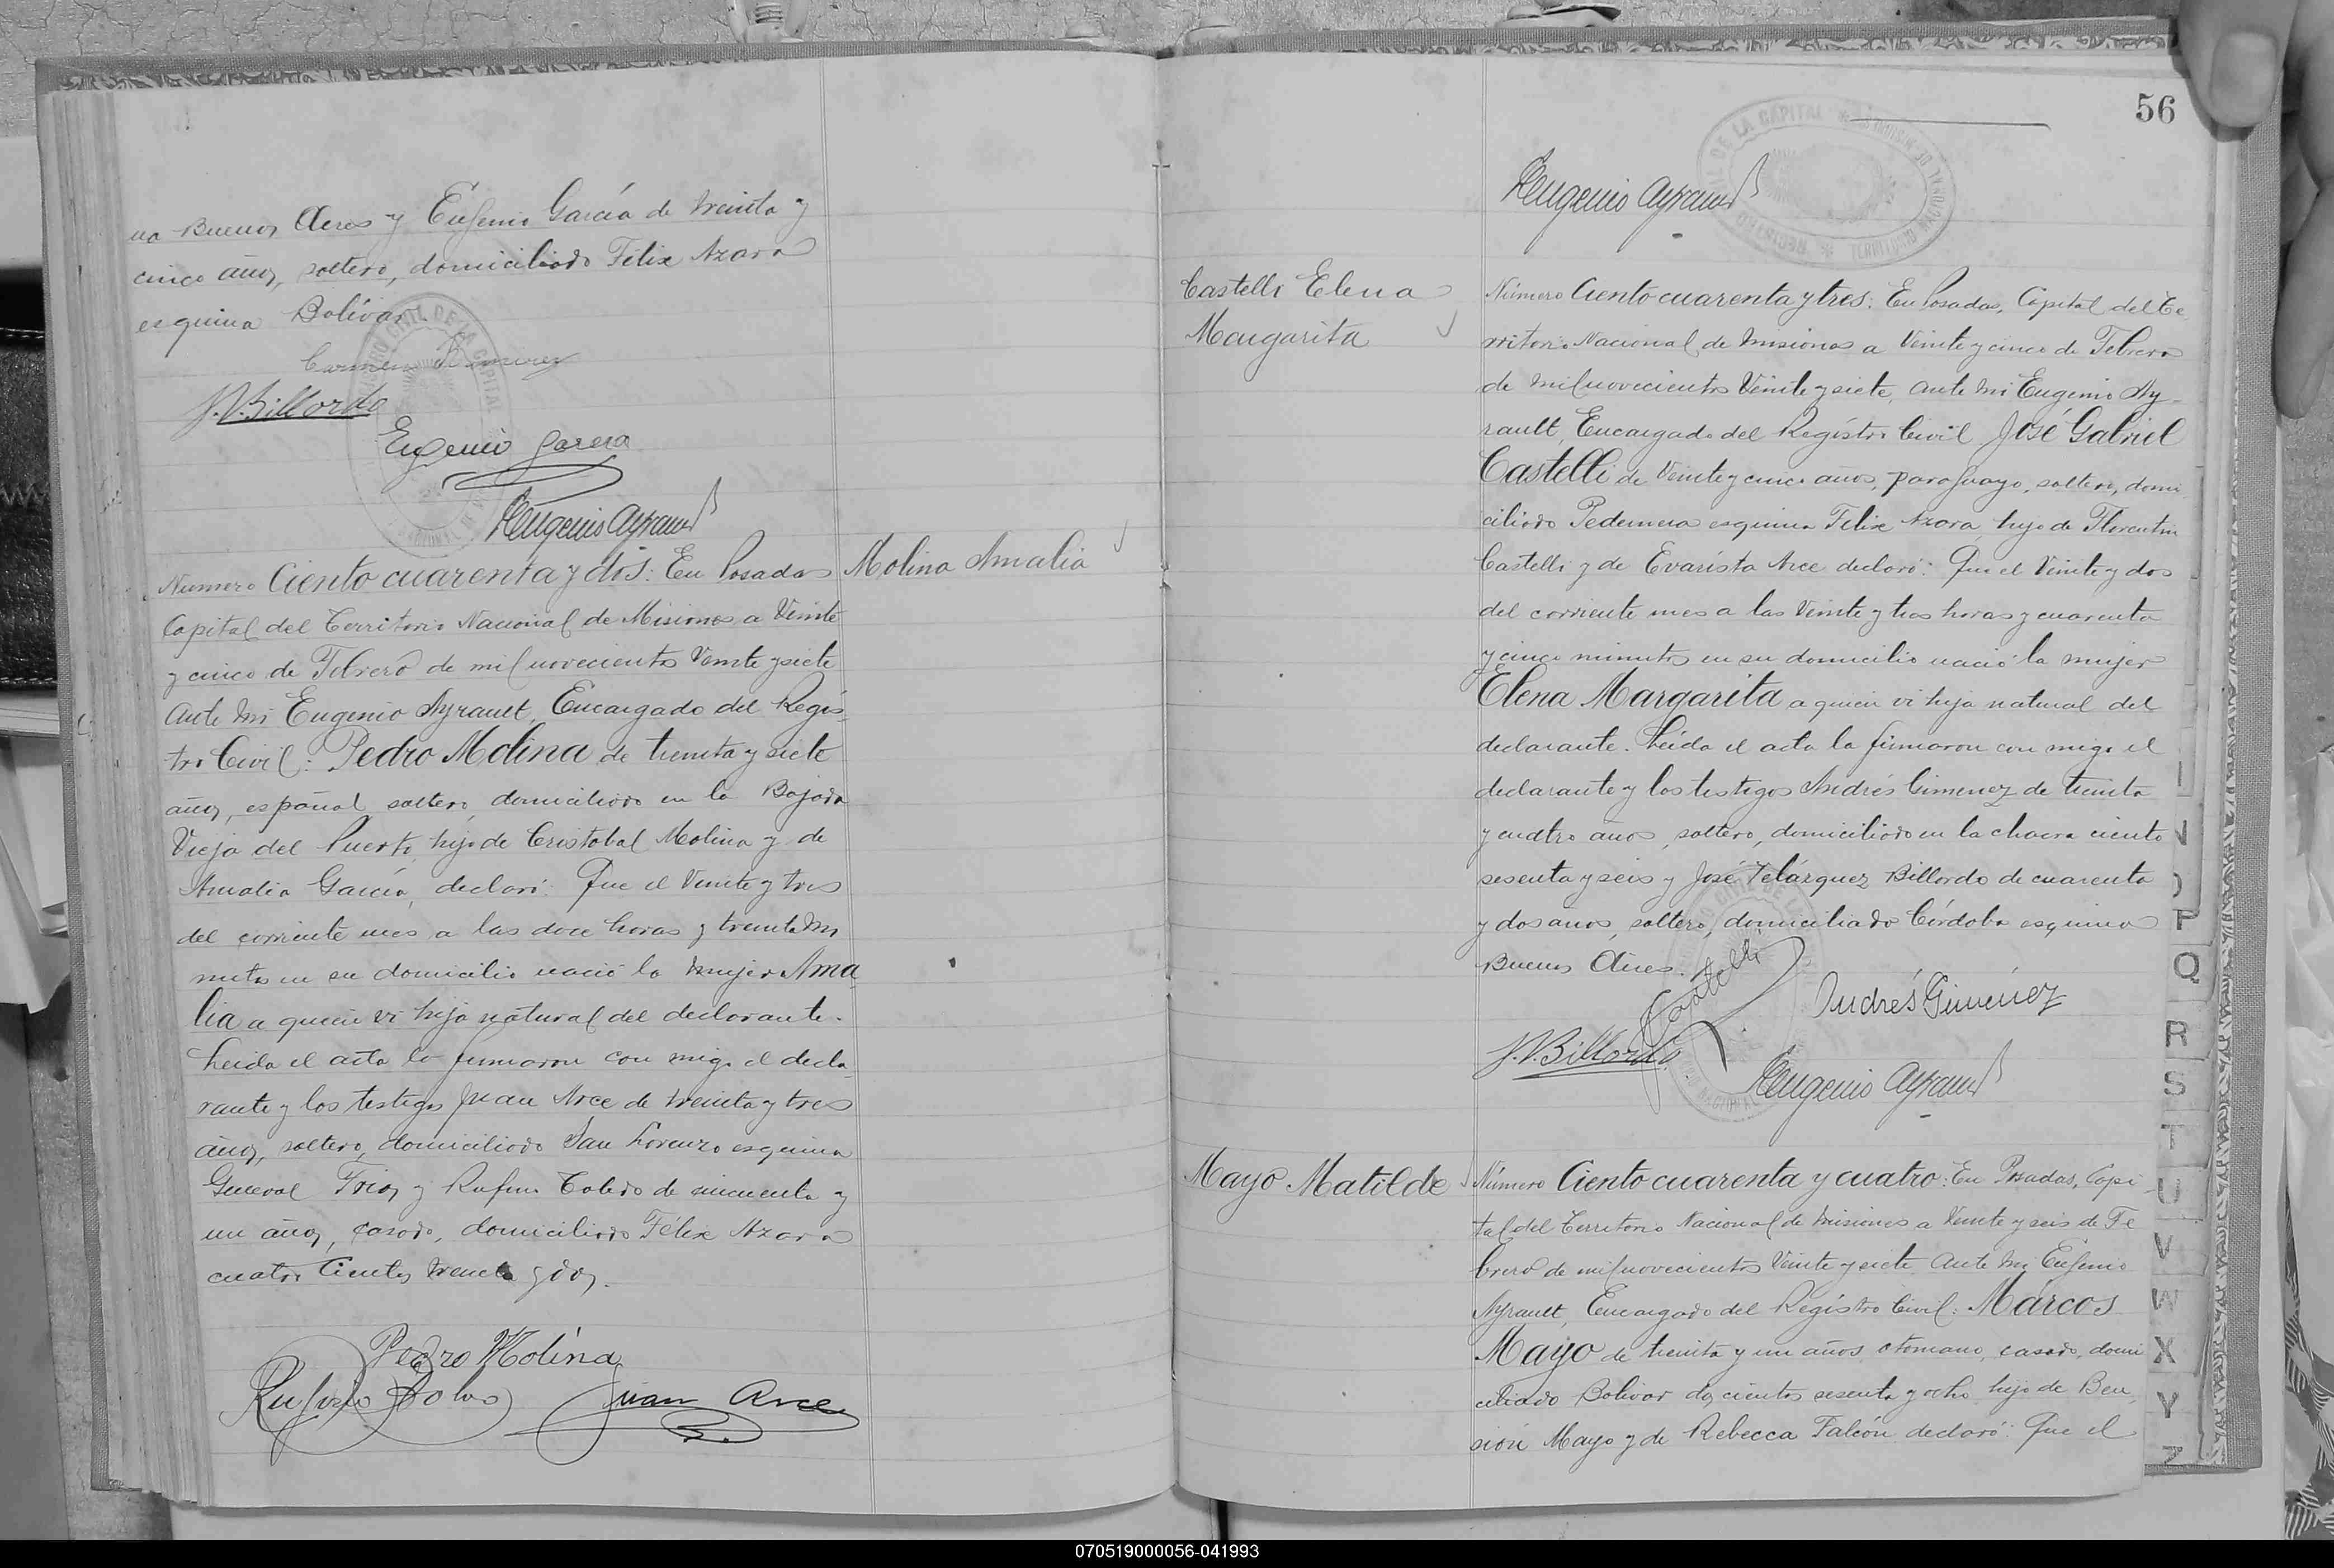 na Buenos Aires y Eugenio García de treinta y
cinco años, soltero, domiciliado Félix Azara
esquina Bolívar.
Carmen Ramirez
J.V.Billordo
Eugenio Garcia
Eugenio Ayrault
Número Ciento cuarenta y dos: En Posadas
Molina Amalia
Capital del Territorio Nacional de Misiones a Veinte
y cinco de Febrero de mil novecientos Veinte y siete
Ante mi Eugenio Ayrault, Encargado del Regis-
tro Civil: Pedro Molina de treinta y siete
años, español, soltero, domiciliado en la Bajada
Vieja del Puerto, hijo de Cristobal Molina y de
Amalia García, declaró: Que el Veinte y tres
del corriente mes a las doce horas y treinta mi
nutos en su domicilio nació la mujer Ama
lia a quien vi hija natural del declarante.
Leida el acta la firmaron con migo el decla-
rante y los testigos Juan Arce de treinta y tres
años, soltero, domiciliado San Lorenzo esquina
General Frias y Rufino Toledo de cincuenta y
un años, casado, domiciliado Félix Azara
cuatro cientos treinta y dos.
Pedro Molina
Juan Arce
56
REGISTRO CIVIL DE LA CAPITAL
Eugenio Ayrault
Castelli Elena
Margarita
Número Ciento cuarenta y tres: En Posadas, Capital del Te
rritorio Nacional de Misiones a Veinte y cinco de Febrero
de mil novecientos Veinte y siete, ante mi Eugenio Ay-
rault, Encargado del Registro Civil José Gabriel
Castelli de Veinte y cinco años, paraguayo, soltero, domi
ciliado Pedernera esquina Felix Azara, hijo de Florentin
Castelli y de Evarista Arce declaró: Que el Veinte y dos
del corriente mes a las Veinte y tres horas y cuarenta
y cinco minutos en su domicilio nació la mujer
Elena Margarita a quien vi hija natural del
declarante. Leída el acta la firmaron con migo el
declarante y los testigos Andrés Gimenez de treinta
y cuatro años, soltero, domiciliado en la chacra ciento
sesenta y seis y José Velázquez Billordo de cuarenta
y dos años, soltero, domiciliado Córdoba esquina
Buenos Aires.
Castelli
Andrés Giménez
J.V.Billordo
Eugenio Ayrault
Mayo Matilde
Número Ciento cuarenta y cuatro: En Posadas, Capi
tal del Territorio Nacional de Misiones a Veinte y seis de Fe
brero de mil novecientos Veinte y siete Ante mi Eugenio
Ayrault, Encargado del Registro Civil: Marcos
Mayo de treinta y un años, otomano, casado, domi
ciliado Bolivar doscientos sesenta y ocho hijo de Ben
sión Mayo y de Rebecca Falcón declaró: Que el
P
Q
R
S
T
U
V
W
X
Y
Z
070519000056-041993